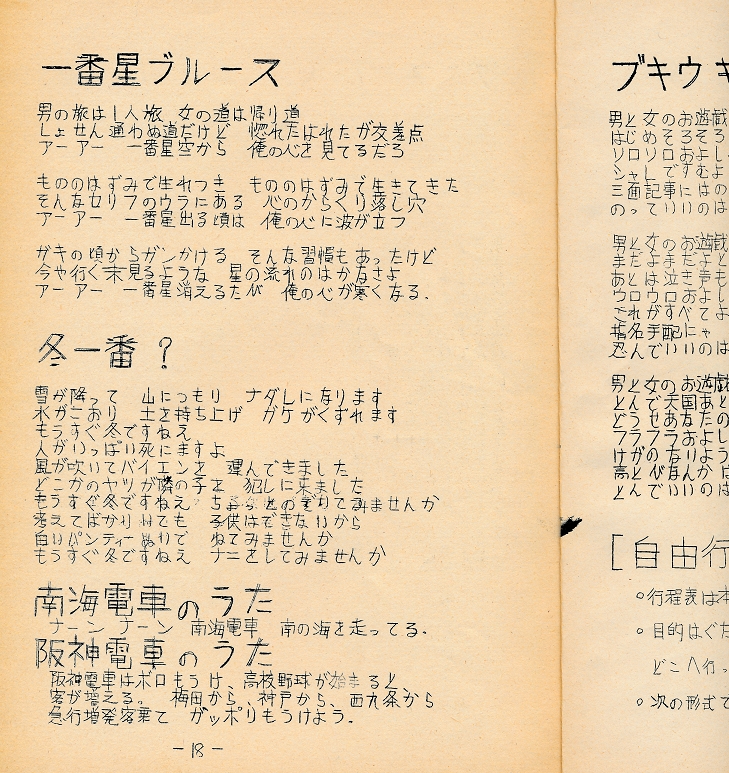 一番星ブルース
男の旅は1人旅 女の道は帰り道
しょせん通わぬ道だけど 惚れたはれたが交差点
アー アー 一番星空から 俺の心を見てるだろ
もののはずみで生れつき もののはずみで生きてきた
そんなセリフのウラにある 心のからくり落し穴
アー アー 一番星出る頃は 俺の心に波が立つ
ガキの頃からガンかける そんな習慣もあったけど
今や行く末見るような 星の流れのはかなさよ
アー アー 一番星消えるたんび 俺の心が寒くなる.
冬一番?
雪が降って 山につもり ナダレになります
水がこおり 土を持ち上げ ガケがくずれます
もうすぐ冬ですねえ
人がいっぱい死にますよ
風が吹いてバイエンを 運んできました
どこかのヤツが隣の子を 犯しに来ました
もうすぐ冬ですねえ ちょっとのぞいてみませんか
考えてばかりいても 子供はできないから
白いパンティーぬいで ねてみませんか
もうすぐ冬ですねえ ナニをしてみませんか
南海電車のうた
ナーン ナーン 南海電車 南の海を走ってる.
阪神電車のうた
阪神電車はボロもうけ、高校野球が始まると
客が増える. 梅田から、神戸から、西九条から
急行増発客乗て ガッポリもうけよう.
-18-
ブキウキ
男と女のお遊戯
はじめそろそろ
ソロソロおよし
シャレですむよ
三面記事にはの
のっていいのは
男と女のお遊戯
まだよまだよと
あとは泣き声も
ウロウロおよし
これがすべてよ
指名手配にゃ
忍んでいいのは
男と女のお遊戯
とんで天国あと
どうせあなたの
フラフラおよし
けがのないよう
高とびなんかは
とんでいいのは
[自由行
○行程表は本
○目的はぐだ
どこへ行っ
○次の形式で